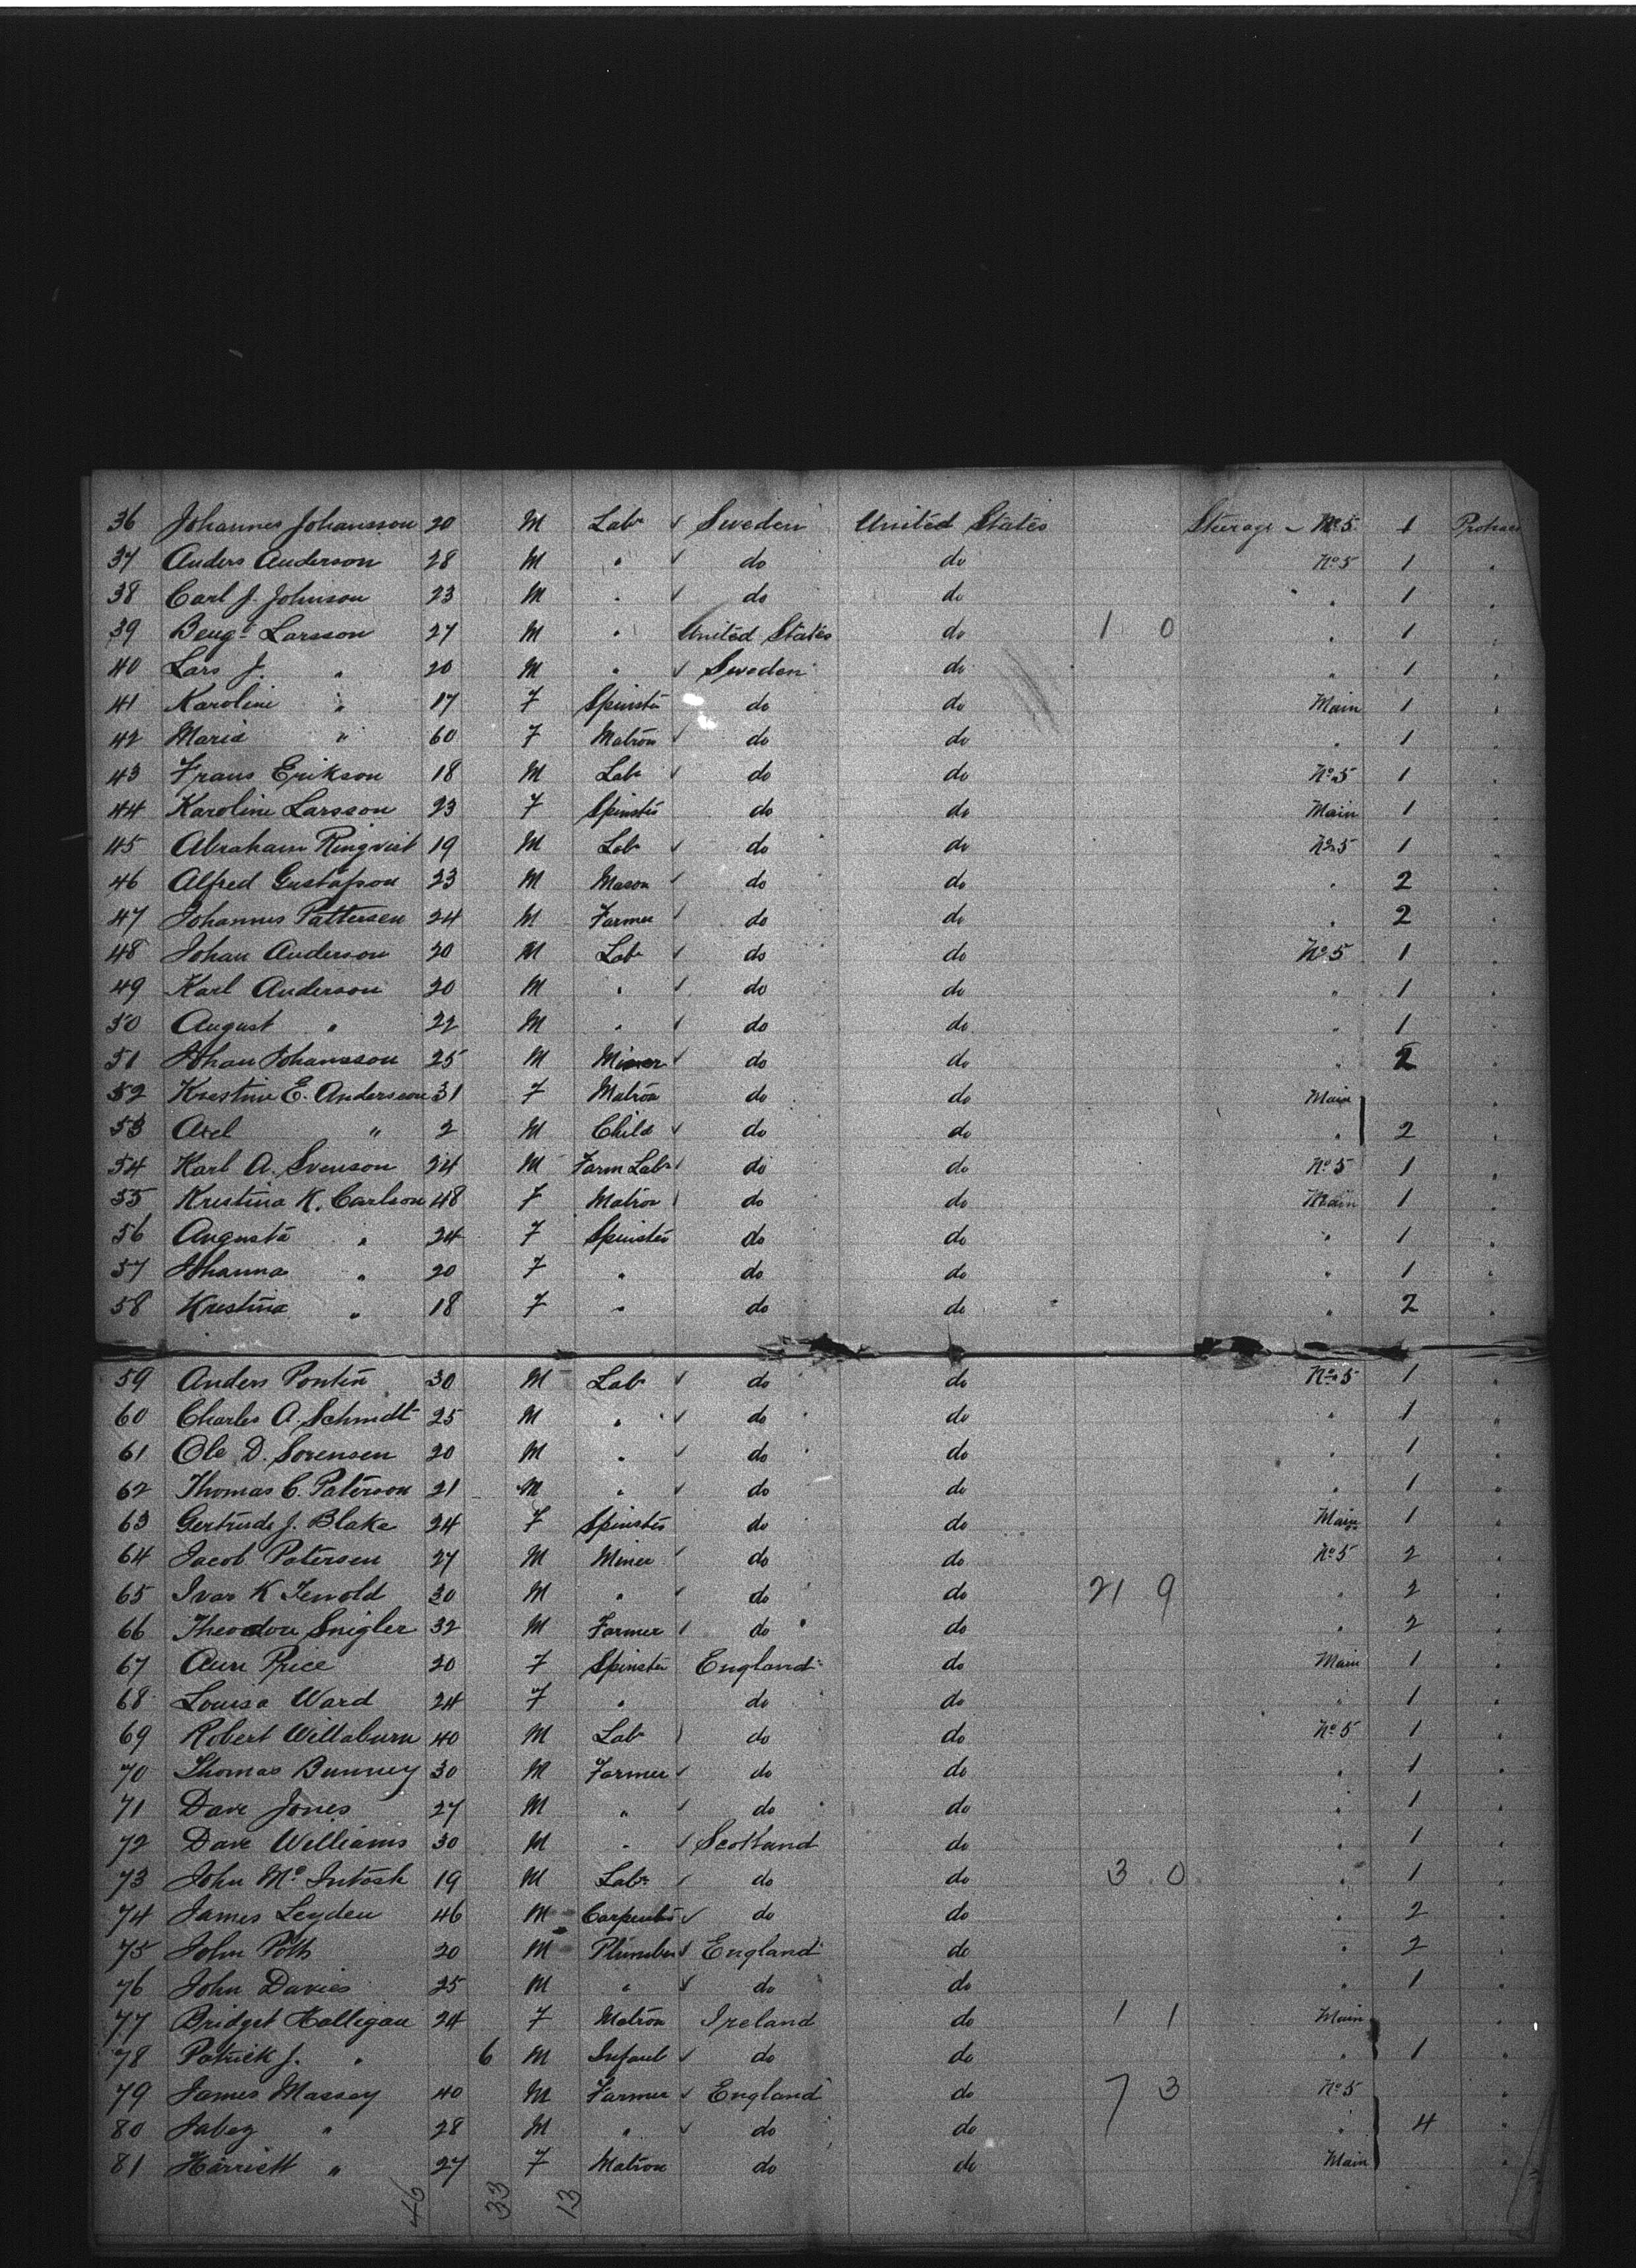 36 Johannes Johansson 20 M Labr ✓ Sweden United States Steerage - No. 5 1 Protrac
37 Anders Anderson 28 M " ✓ do do No. 5 1 "
38 Carl J. Johnson 23 M " ✓ do do " 1 "
39 Bengt Larsson 27 M " United States do 1 0 " 1 "
40 Lars J. " 20 M " ✓ Sweden do " 1 "
41 Karoline " 17 F Spinster do do Main 1 "
42 Maria " 60 F Matron ✓ do do " 1 "
43 Frans Erikson 18 M Labr ✓ do do No. 5 1
44 Karoline Larsson 23 F Spinster do do Main 1
45 Abraham Ringvist 19 M Labr ✓ do do No. 5 1 "
46 Alfred Gustafson 23 M Mason ✓ do do " 2 "
47 Johannes Pattersen 24 M Farmer ✓ do do " 2 "
48 Johan Anderson 20 M Labr ✓ do do No. 5 1 "
49 Karl Anderson 20 M " ✓ do do " 1 "
50 August " 22 M " ✓ do do " 1 "
51 Johan Johansson 25 M Miner ✓ do do " 2 "
52 Krestine E. Andersson 31 F Matron do do Main "
53 Axel " 2 M Child ✓ do do " 2 "
54 Karl A. Svenson 24 M Farm Labr ✓ do do No. 5 1 "
55 Krestina K. Carlson 48 F Matron do do Main 1 "
56 Augusta " 24 F Spinster do do " 1 "
57 Johanna " 20 F " do do " 1 "
58 Krestina " 18 F " do do " 2 "
59 Anders Pontin 30 M Labr ✓ do do No. 5 1 "
60 Charles A. Schmidt 25 M " ✓ do do " 1 "
61 Ole D. Sorensen 20 M " ✓ do do " 1 "
62 Thomas C. Paterson 21 M " ✓ do do " 1 "
63 Gertrude J. Blake 24 F Spinster do do Main 1 "
64 Jacob Patersen 27 M Miner ✓ do do No. 5 2 "
65 Ivar K 30 M " ✓ do do 21 9 " 2 "
66 Theodore Snigler 32 M Farmer ✓ do do " 2 "
67 Ann Price 20 F Spinster England do Main 1 "
68 Louisa Ward 24 F " do do " 1 "
69 Robert Willaburn 40 M Labr ✓ do do No. 5 1 "
70 Thomas Bunney 30 M Farmer ✓ do do " 1 "
71 Dave Jones 27 M " ✓ do do " 1 "
72 Dave Williams 30 M " ✓ Scotland do " 1 "
73 John Mc Intosh 19 M Labr ✓ do do 3 0 " 1 "
74 James Leyden 46 M Carpenter ✓ do do " 2 "
75 John Potts 20 M Plumber ✓ England do " 2 "
76 John Davies 25 M " ✓ do do " 1 "
77 Bridget Halligan 24 F Matron Ireland do 1 1 Main "
78 Patrick J. " 6 M Infant ✓ do do " 1 "
79 James Massey 40 M Farmer ✓ England do 7 3 No. 5 "
80 Jabez " 28 M " ✓ do do " 4 "
81 Harriett " 27 F Matron do do Main "
46 33 13